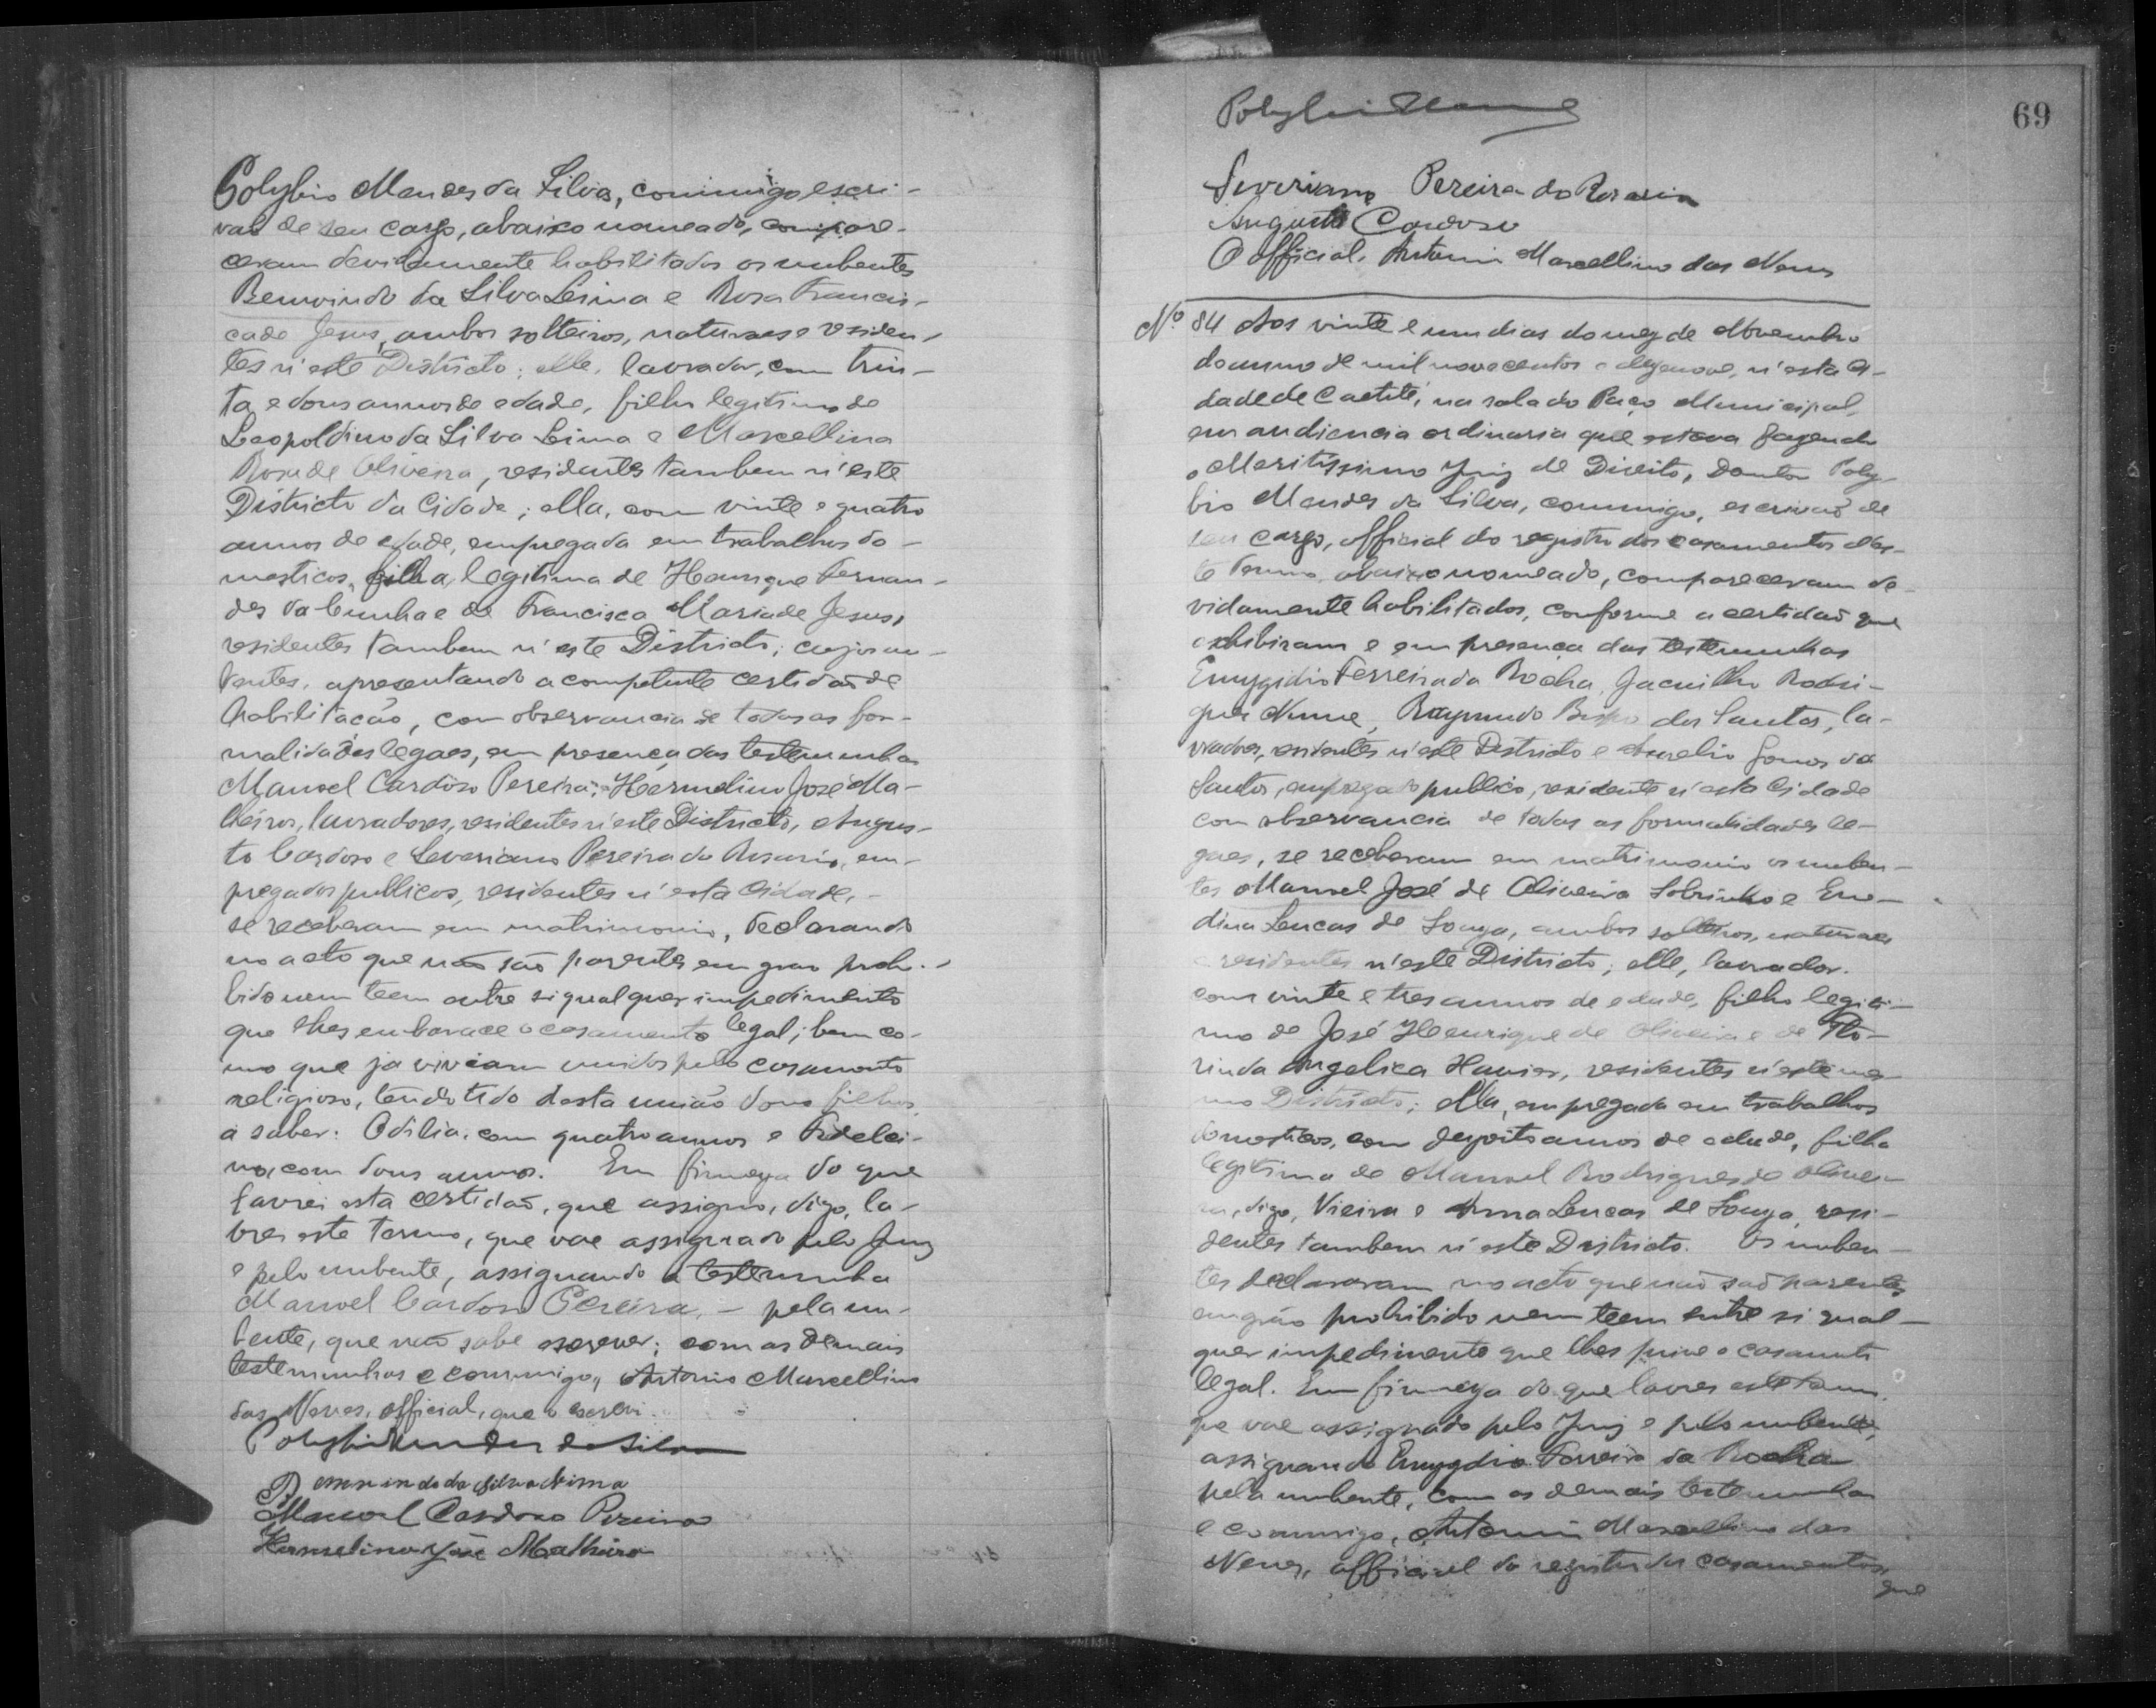 Polybio Mendes da Silva, commigo escri-
vaõ de seu cargo, abaixo nomeado, compare-
ceram devidamente habilitados os nubentes
Bemvindo da Silva Leima e Rosa Francis-
ca de Jesus, ambos solteiros, naturaes e residen-
tes n'este Districto; elle, lavrador, com trin-
ta e dous annos de edade, filho legitimo de
Leopoldino da Silva Leima e Marcellina
Rosa de Oliveira, residentes tambem n'este
Districto da Cidade; ella, com vinte e quatro
annos de edade, empregada em trabalhos do-
mesticos, filha legitima de Henrique Fernan-
des da Cunha e de Francisca Maria de Jesus,
residentes tambem n'este Districto; cujos nu-
bentes, apresentando a competente certidaõ de
habilitação, com observancia de todas as for-
malidades legaes, em presença das testemunhas
Manoel Cardoso Pereira, Hermelino José Ma-
lheiros, lavradores, residentes n'este Districto, Augus-
to Cardoso e Severiano Pereira do Rosario, em-
pregados publicos, residentes n'esta Cidade, -
se receberam em matrimonio, declarando
no acto que não são parentes em grao prohi-
bido nem teem entre si qualquer impedimento
que lhes embarace o casamento legal; bem co-
mo que ja viviam unidos pelo casamento
religioso, tendo tido desta união dous filhos,
a saber: Odilia, com quatro annos e Fidelci-
no, com dous annos. Em firmeza do que
lavrei esta certidaõ, que assigno, digo, la-
vrei este termo, que vae assignado pelo Juiz
e pelo nubente, assignando a testemunha
Manoel Cardoso Pereira, - pela nu-
bente, que não sabe escrever; com as demais
testemunhas e commigo, Antonio Marcellino
das Neves, official, que o escrevi.
Polybio Mendes da Silva
Bemvindo da Silva Lima
Manoel Cardoso Pereira
Hermelino José Malheiro
69
Severiano Pereira do Rosario
Augusto Cardoso
O official, Antonio Marcellino das Neves
Nº 84 Aos vinte e um dias do mez de Novembro
do anno de mil novecentos e dezenove, n'esta Ci-
dade de Caetité, na sala do Paço Municipal,
em audiencia ordinaria que estava fazendo
o Meritissimo Juiz de Direito, Doutor Poly-
bio Mendes da Silva, commigo, escrivaõ de
seu cargo, official do registro dos casamentos des-
te Termo, abaixo nomeado, compareceram de-
vidamente habilitados, conforme a certidaõ que
exhibiram e em presença das testemunhas
Emygidio Ferreira da Rocha, Rodri-
gues Raymundo Bispo dos Santos, la-
vradores, residentes n'este Districto e Aurelio Gomes dos
Santos, empregado publico, residente n'esta Cidade
com observancia de todas as formalidades le-
gaes, se receberam em matrimonio os nuben-
tes Manoel José de Oliveira Sobrinho e Ene-
dina Leucas de Souza, ambos solteiros, naturaes
e residentes n'este Districto; elle, lavrador,
com vinte e tres annos de edade, filho legiti-
mo de José Henrique de Oliveira e de Flo-
rinda Angelica Xavier, residentes n'este mes-
mo Districto; ella, empregada em trabalhos
domesticos, com dezoito annos de edade, filha
legitima de Manoel Rodrigues de Olivei-
ra, digo, Vieira e Anna Leucas de Souza, resi-
dentes tambem n'este Districto. Os nuben-
tes declararam no acto que não saõ parentes
em grão prohibido nem teem entre si qual-
quer impedimento que lhes prive o casamento
legal. Em firmeza do que lavrei este termo,
que vae assignado pelo Juiz e pelo nubente,
assignando Emygdio Ferreira da Rocha
pela nubente, com as demais testemunhas
e commigo, Antonio Marcellino das
Neves, official do registro dos casamentos,
que